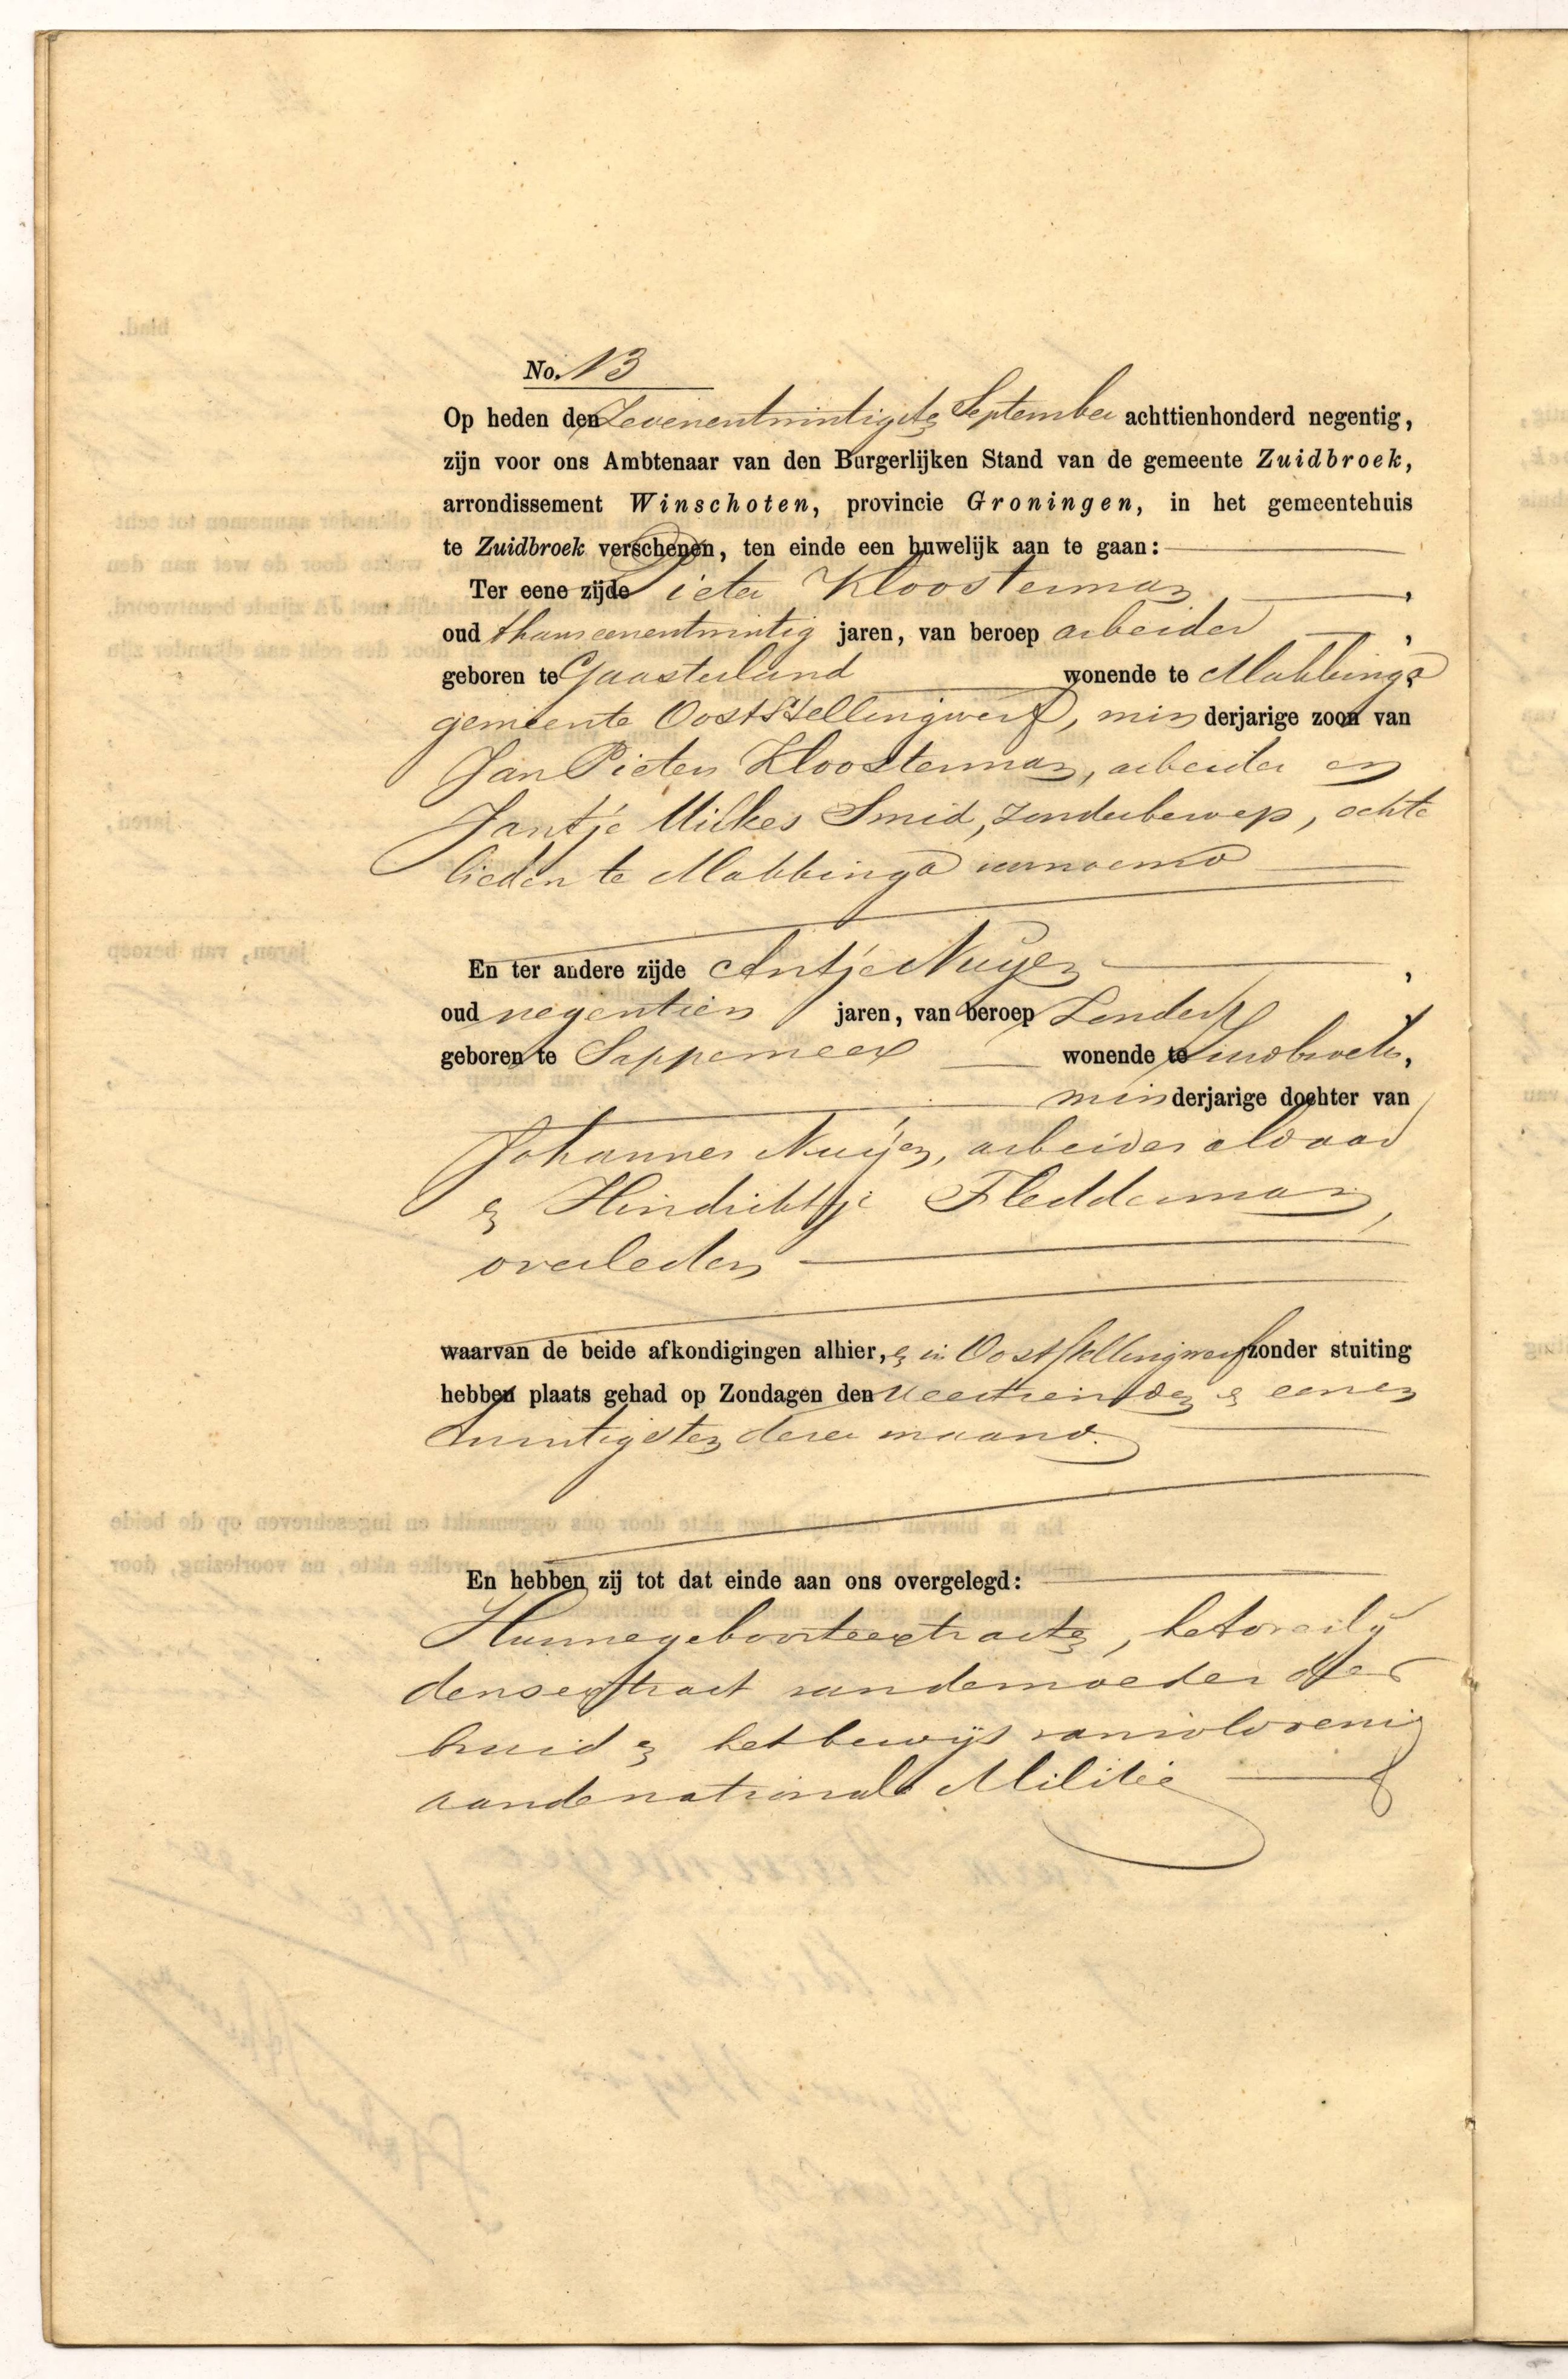 No. 13
Op heden den Zevenentwintigste September achttienhonderd negentig,
zijn voor ons Ambtenaar van den Burgerlijken Stand van de gemeente Zuidbroek,
arrondissement Winschoten, provincie Groningen, in het gemeentehuis
te Zuidbroek verschenen, ten einde een huwelijk aan te gaan:
Ter eene zijde Pieter Kloosterman,
oud thans eenentwintig jaren, van beroep arbeider,
geboren te Gaasterland wonende te Mabbinga
gemeente Ooststellingwerf, minderjarige zoon van
Jan Pieters Kloosterman, arbeider en
Jantje Wilkes Smid, zonder beroep, echte
lieden te Mabbinga voornoemd
En ter andere zijde Antje Nuijen,
oud negentien jaren, van beroep Zonder,
geboren te Sappemeer wonende te Zuidbroek,
minderjarige dochter van
Johannes Nuijen, arbeider aldaar
en Hindrikttje Fledderman,
overleden
waarvan de beide afkondigingen alhier, en in Ooststellingwerf zonder stuiting
hebben plaats gehad op Zondagen den Veertienden en eenen
twintigsten dezer maand.
En hebben zij tot dat einde aan ons overgelegd:
Hunne geboorteextracten, het overlij
densextract van de moeder der
bruid en het bewijs van voldoening
aan de nationale Militie